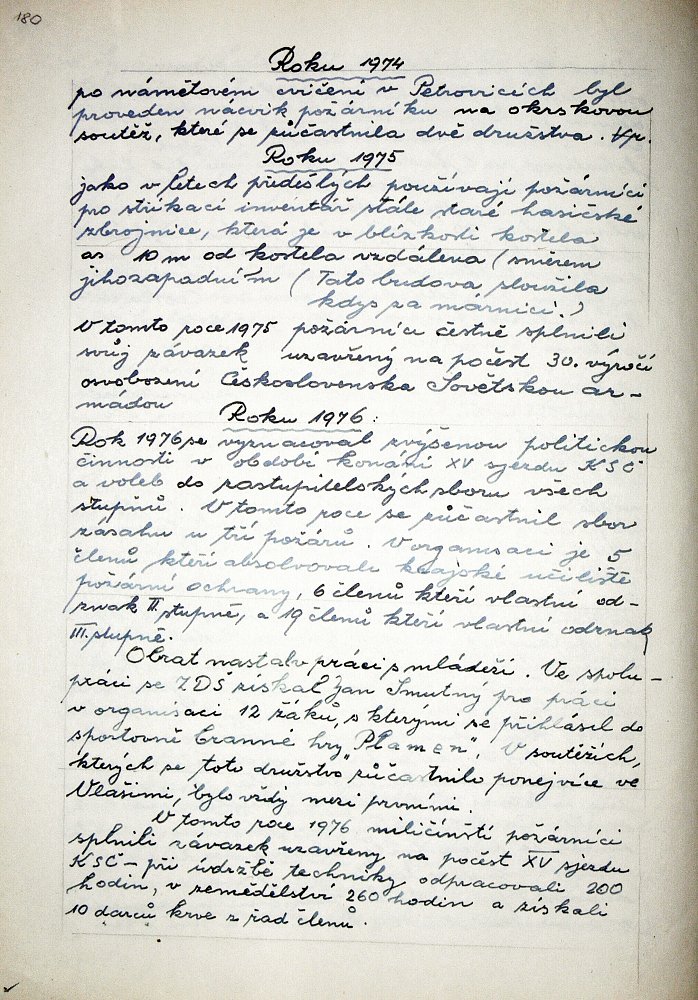 180
Roku 1974
po námětovém cvičení v Petrovicích byl
proveden nácvik požárníku na okrskovou
soutěž, které se zůčastnila dvě družstva.
Roku 1975
jako v letech předešlých používají požárníci
pro stříkací inventář stále staré hasičské
zbrojnice, která je v blízkosti kostela
as 10 m od kostela vzdálena (směrem
jihozapadním (Tato budova sloužila
kdys za marnici.)
V tomto roce 1975 požárníci čestně splnili
svůj závazek uzavřený na počest 30. výročí
osvobození Československa Sovětskou ar-
mádou Roku 1976:
Rok 1976 se vyznacoval zvýšenou politickou
činnosti v období konání XV sjezdu KSČ
a voleb do zastupitelských sboru všech
stupňů. V tomto roce se zůčastnil sbor
zásahu u tří požárů. V organisaci je 5
členů kteří absolvovali krajské učiliště
požární ochrany, 6 členů kteří vlastní od-
znak II. stupně, a 19 členů kteří vlastní odznak
III. stupně.
Obrat nastal v práci s mládeží. Ve spolu-
práci se ZDŠ získal Jan Smutný pro práci
v organisaci 12 žáků, s kterými se přihlásil do
sportovně branné hry „Plamen". V soutěžích,
kterých se toto družstvo zůčastnilo ponejvíce ve
Vlašimi, bylo vždy mezi prvními.
V tomto roce 1976 miličínští požárníci
splnili závazek uzavřeny na počest XV sjezdu
KSČ - při údržbě techniky odpracovali 200
hodin, v zemědělství 260 hodin a získali
10 darců krve z řad členů.